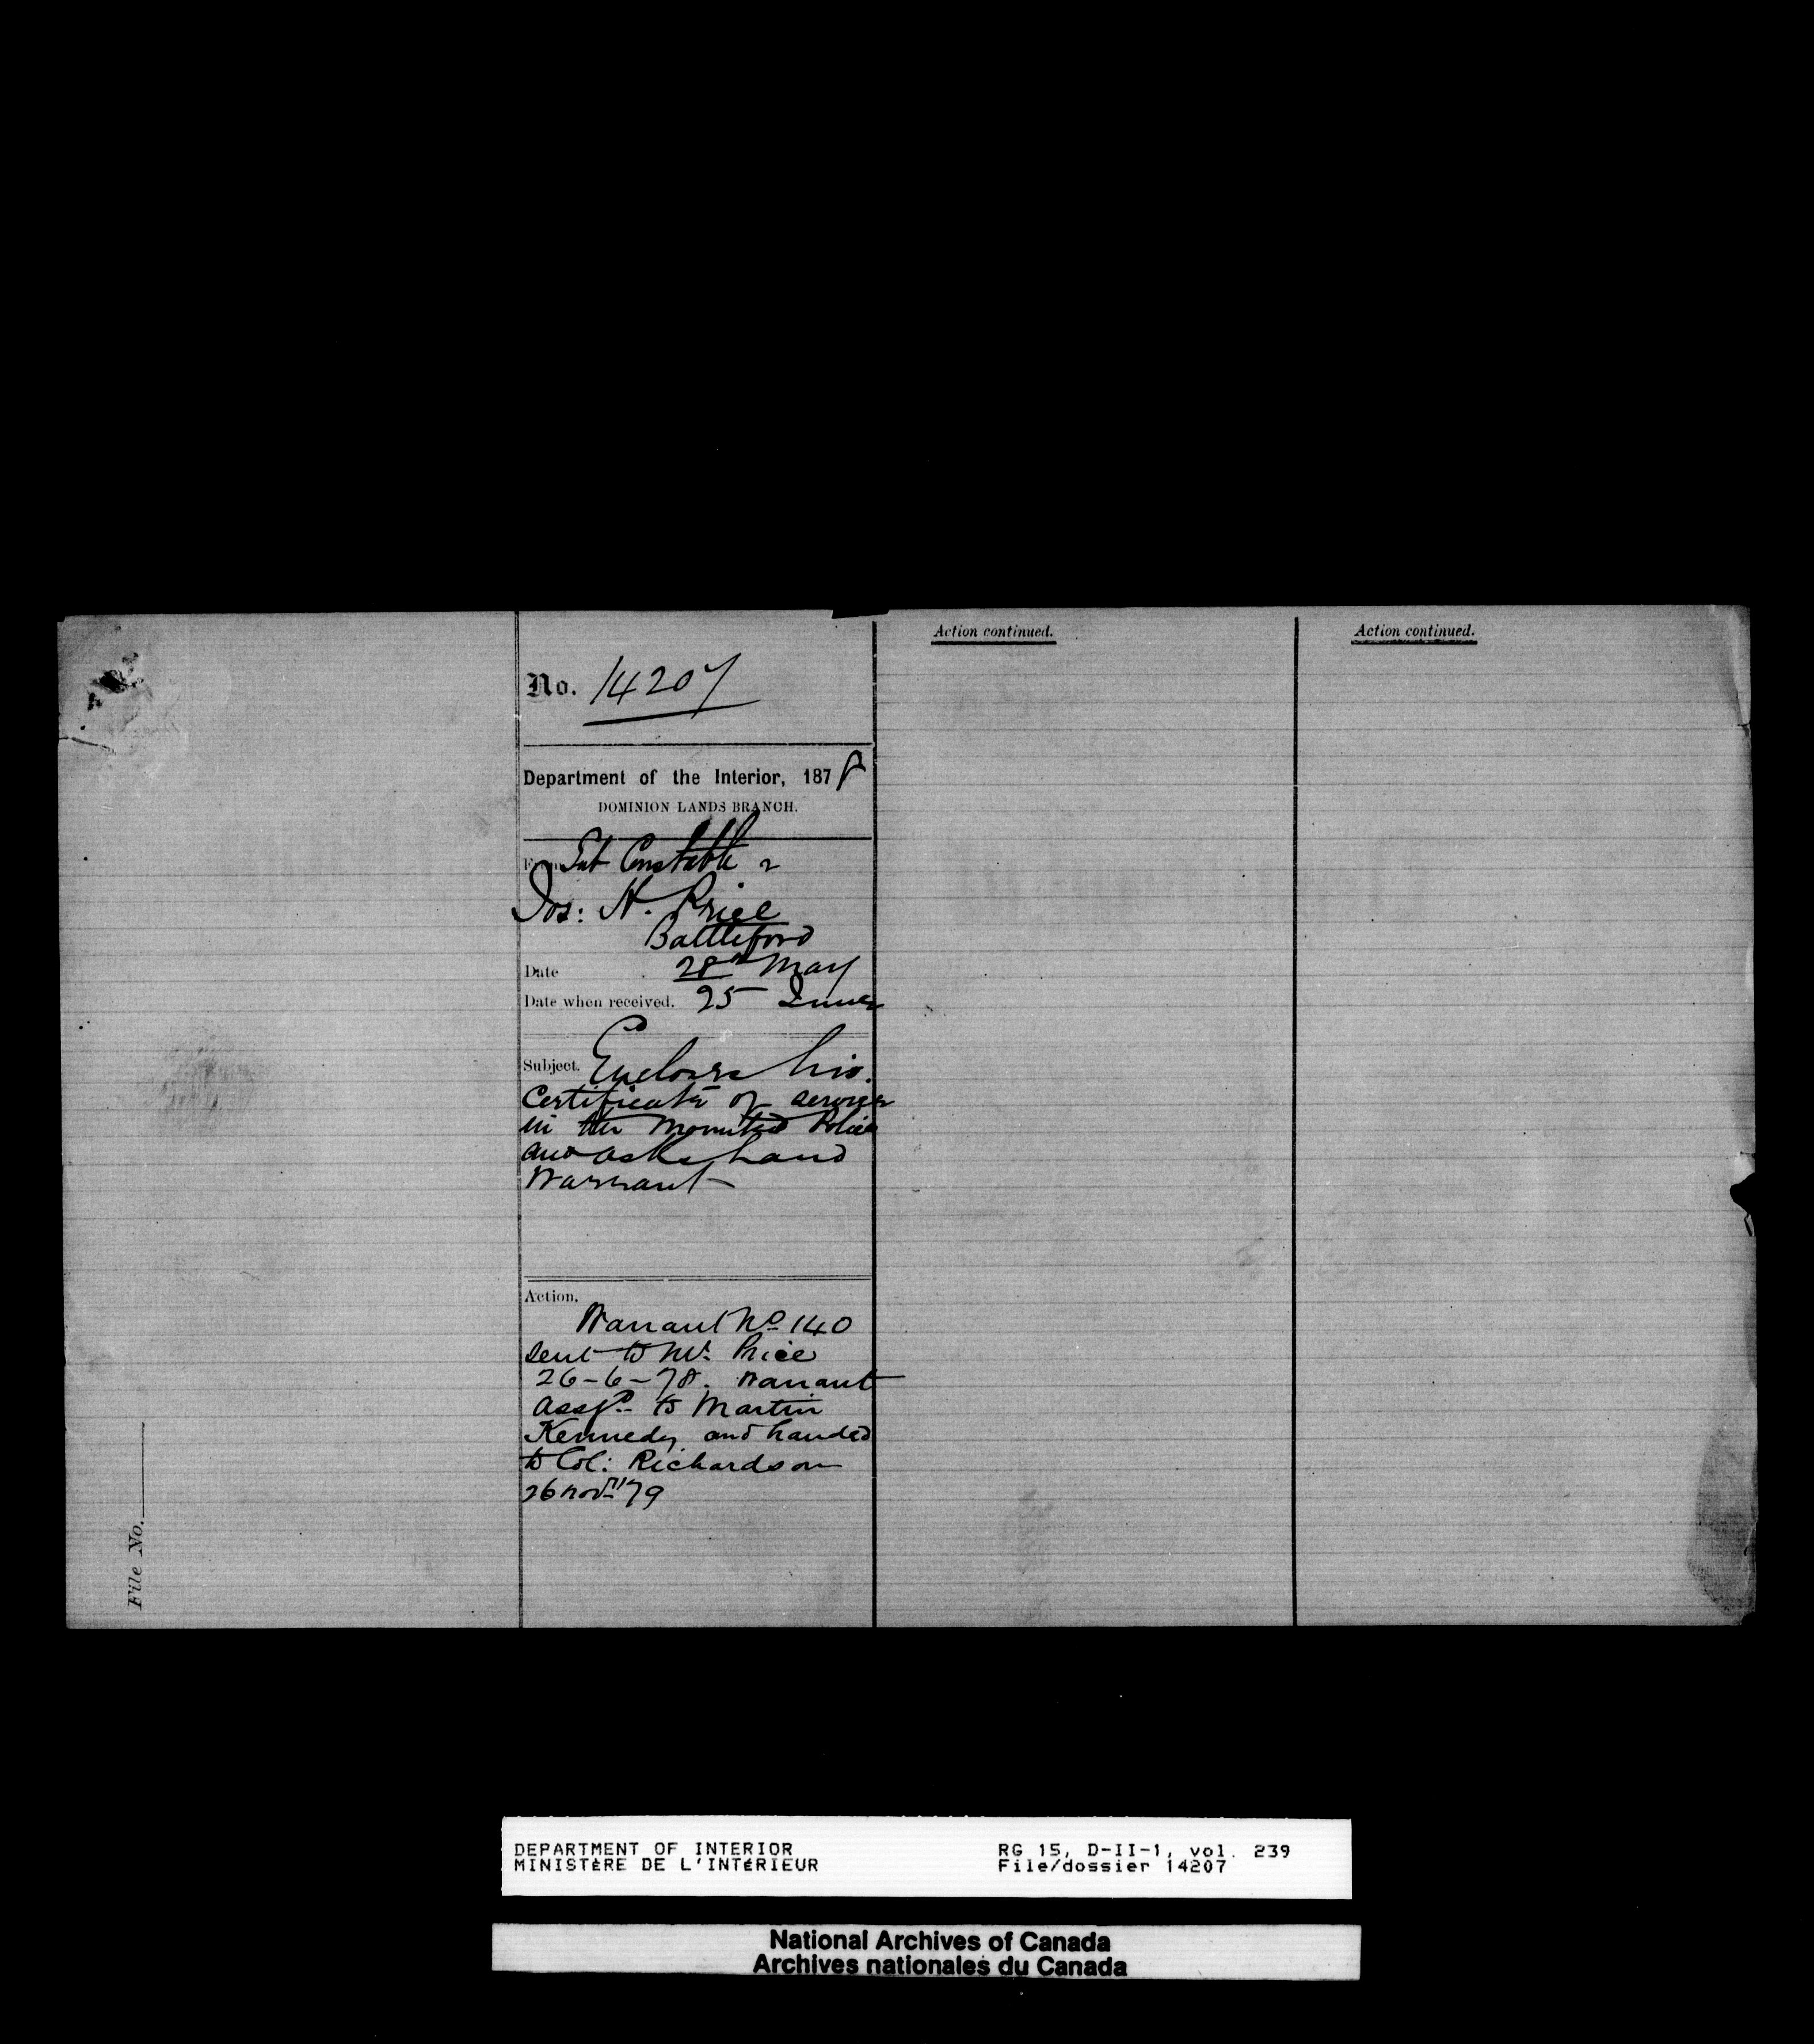 No. 14207
Department of the Interior, 1878
DOMINION LANDS BRANCH.
From Sub Constable
Jos: H. Price
Battleford
Date 28th May
Date when received. 25 June
Subject. Encloses his
Certificate of service
in the Mounted Police
and asks Land
Warrant
Action.
Warrant No 140
sent to Mr. Price
26-6-78. Warrant
assgd. to Martin
Kennedy and handed
to Col: Richardson
26 Novr. '79
File No.
Action continued.
Action continued.
DEPARTMENT OF INTERIOR
MINISTÈRE DE L'INTÉRIEUR
RG 15, D-II-1, vol. 239
File/dossier 14207
National Archives of Canada
Archives nationales du Canada